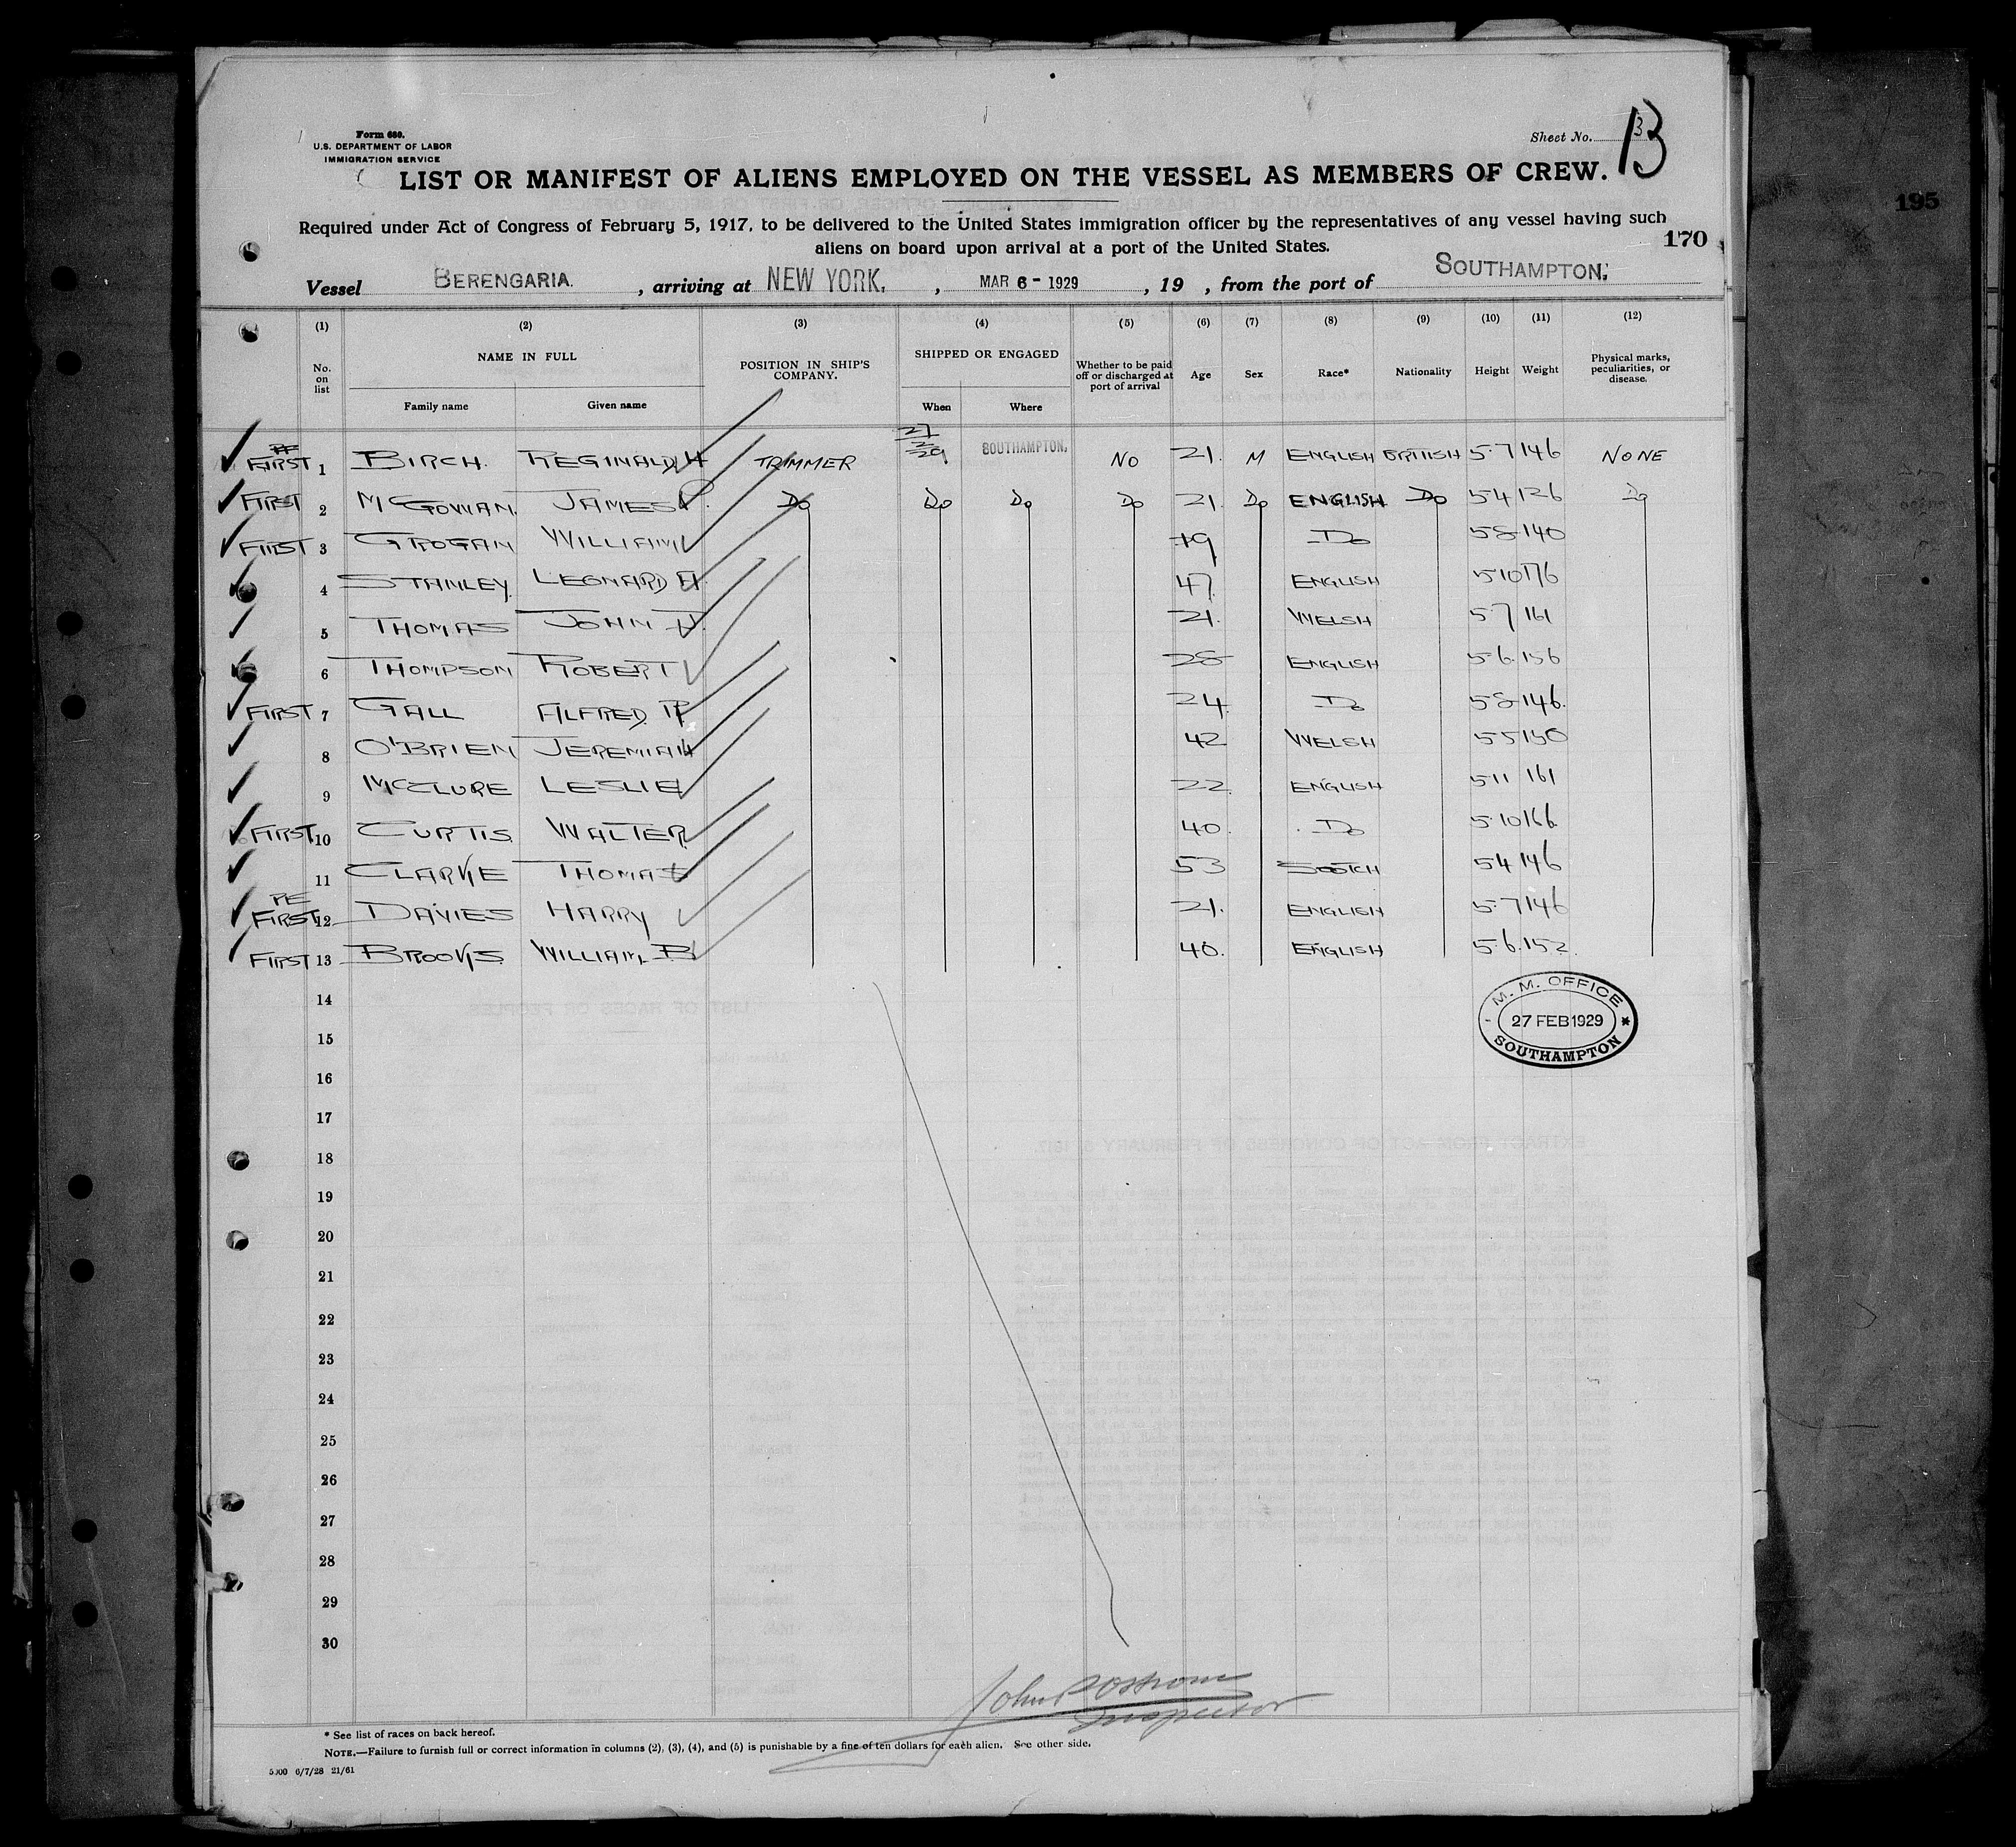 Form 680.
U.S. DEPARTMENT OF LABOR
IMMIGRATION SERVICE
Sheet No. 13
LIST OR MANIFEST OF ALIENS EMPLOYED ON THE VESSEL AS MEMBERS OF CREW.
195
Required under Act of Congress of February 5, 1917, to be delivered to the United States immigration officer by the representatives of any vessel having such
aliens on board upon arrival at a port of the United States.
170
Vessel BERENGARIA. , arriving at NEW YORK. , MAR 6 - 1929 , 19 , from the port of SOUTHAMPTON.
(1) (2) (3) (4) (5) (6) (7) (8) (9) (10) (11) (12)
No. on list NAME IN FULL Family name Given name POSITION IN SHIP'S COMPANY. SHIPPED OR ENGAGED When Where Whether to be paid off or discharged at port of arrival Age Sex Race* Nationality Height Weight Physical marks, peculiarities, or disease.
FIRST 1 BIRCH. REGINALD H TRIMMER 27/2/29 SOUTHAMPTON. NO 21. M ENGLISH BRITISH 5·7 146 NONE
FIRST 2 McGOWAN. JAMES P. Do Do Do Do 21. Do ENGLISH Do 5 4 126 Do
FIRST 3 GROGAN WILLIAM 19 Do 5 8 140
4 STANLEY. LEONARD A. 47. ENGLISH 5 10 176
5 THOMAS JOHN J. 21. WELSH 5·7 161
6 THOMPSON ROBERT 28 ENGLISH 5·6. 156
FIRST 7 GALL ALFRED R 24. Do 5 8 146.
8 O'BRIEN JEREMIAH 42 WELSH 5 5 150
9 McCLURE LESLIE 22. ENGLISH 5 11 161
FIRST 10 CURTIS. WALTER. 40. Do 5·10 166.
11 CLARKE THOMAS 53 SCOTCH 5 4 146
RE FIRST 12 DAVIES HARRY 21. ENGLISH 5·7 146
FIRST 13 BROOKS. WILLIAM. B 40. ENGLISH 5·6. 152.
14
M. M. OFFICE
27 FEB 1929
SOUTHAMPTON
15
16
17
18
19
20
21
22
23
24
25
26
27
28
29
30
Inspector
* See list of races on back hereof.
NOTE.—Failure to furnish full or correct information in columns (2), (3), (4), and (5) is punishable by a fine of ten dollars for each alien. See other side.
5000 6/7/28 21/61